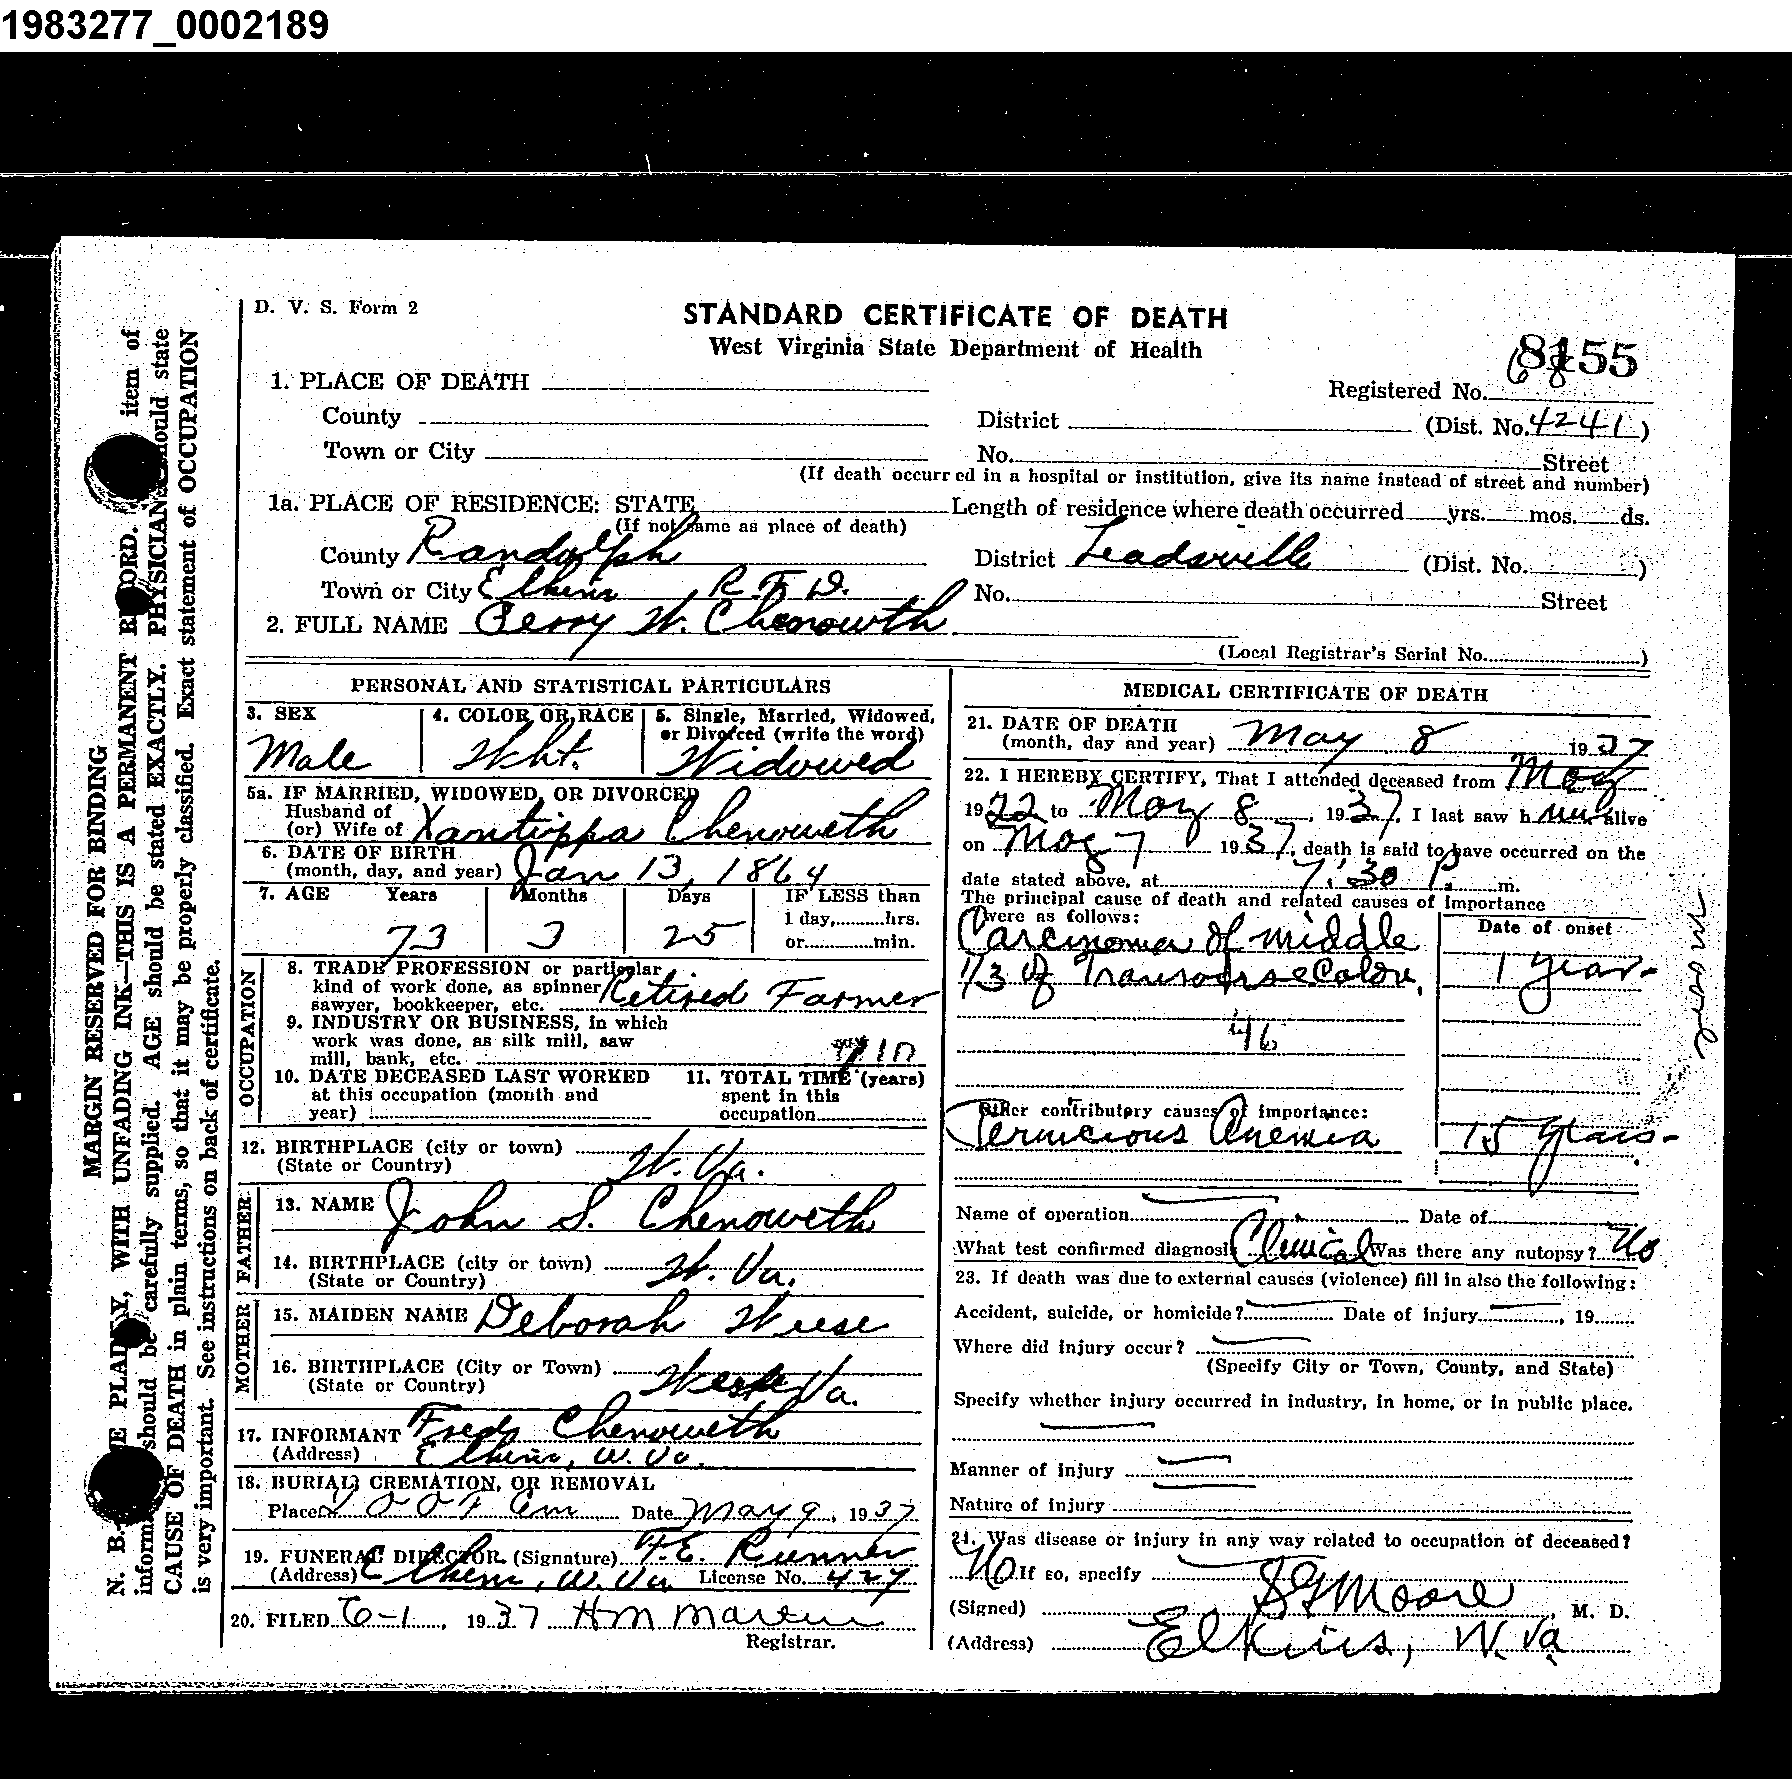 1983277_0002189
D. V. S. Form 2
STANDARD CERTIFICATE OF DEATH
West Virginia State Department of Health
8155
1. PLACE OF DEATH
Registered No. 68
County
District (Dist. No. 4241)
Town or City
No. Street
(If death occurred in a hospital or institution, give its name instead of street and number)
1a. PLACE OF RESIDENCE: STATE
Length of residence where death occurred yrs. mos. ds.
(If not same as place of death)
County Randolph District Leadsville (Dist. No. )
Town or City Elkins R.F.D. No. Street
2. FULL NAME Perry W. Chenowth
(Local Registrar's Serial No. )
PERSONAL AND STATISTICAL PARTICULARS
3. SEX Male
4. COLOR OR RACE Wht.
5. Single, Married, Widowed, or Divorced (write the word) Widowed
5a. IF MARRIED, WIDOWED, OR DIVORCED
Husband of
(or) Wife of Xantippa Chenoweth
6. DATE OF BIRTH
(month, day, and year) Jan 13, 1864
7. AGE Years 73 Months 3 Days 25 IF LESS than
1 day, hrs.
or min.
OCCUPATION
8. TRADE PROFESSION or particular
kind of work done, as spinner
sawyer, bookkeeper, etc. Retired Farmer
9. INDUSTRY OR BUSINESS, in which
work was done, as silk mill, saw
mill, bank, etc.
10. DATE DECEASED LAST WORKED
at this occupation (month and
year)
11. TOTAL TIME (years)
spent in this
occupation
12. BIRTHPLACE (city or town)
(State or Country) W. Va.
FATHER
13. NAME John S. Chenoweth
14. BIRTHPLACE (city or town)
(State or Country) W. Va.
MOTHER
15. MAIDEN NAME Deborah Weese
16. BIRTHPLACE (City or Town)
(State or Country) West Va.
17. INFORMANT Fred Chenoweth
(Address) Elkins, W. Va.
18. BURIAL, CREMATION, OR REMOVAL
Place I O O F Cem Date May 9, 1937
19. FUNERAL DIRECTOR (Signature) F.E. Runner
(Address) Elkins, W. Va License No. 427
20. FILED 6-1, 1937 H M
Registrar.
MEDICAL CERTIFICATE OF DEATH
21. DATE OF DEATH
(month, day and year) May 8 1937
22. I HEREBY CERTIFY, That I attended deceased from May
1922 to May 8, 1937, I last saw him alive
on May 7 1937, death is said to have occurred on the
date stated above, at 7:30 P. m.
The principal cause of death and related causes of importance
were as follows: Date of onset
Carcinoma of middle
1/3 of Transverse Colon, 1 year
46
Other contributory causes of importance:
Pernicious Anemia 15 years
Name of operation Date of
What test confirmed diagnosis Clinical Was there any autopsy? No
23. If death was due to external causes (violence) fill in also the following:
Accident, suicide, or homicide? Date of injury , 19
Where did injury occur?
(Specify City or Town, County, and State)
Specify whether injury occurred in industry, in home, or in public place.
Manner of injury
Nature of injury
24. Was disease or injury in any way related to occupation of deceased?
No If so, specify
(Signed) S G Moore, M. D.
(Address) Elkins, W. Va
MARGIN RESERVED FOR BINDING
N. B. PLAINLY, WITH UNFADING INK—THIS IS A PERMANENT RECORD. item of
should be carefully supplied. AGE should be stated EXACTLY. PHYSICIANS should state
CAUSE OF DEATH in plain terms, so that it may be properly classified. Exact statement of OCCUPATION
is very important. See instructions on back of certificate.
Moore